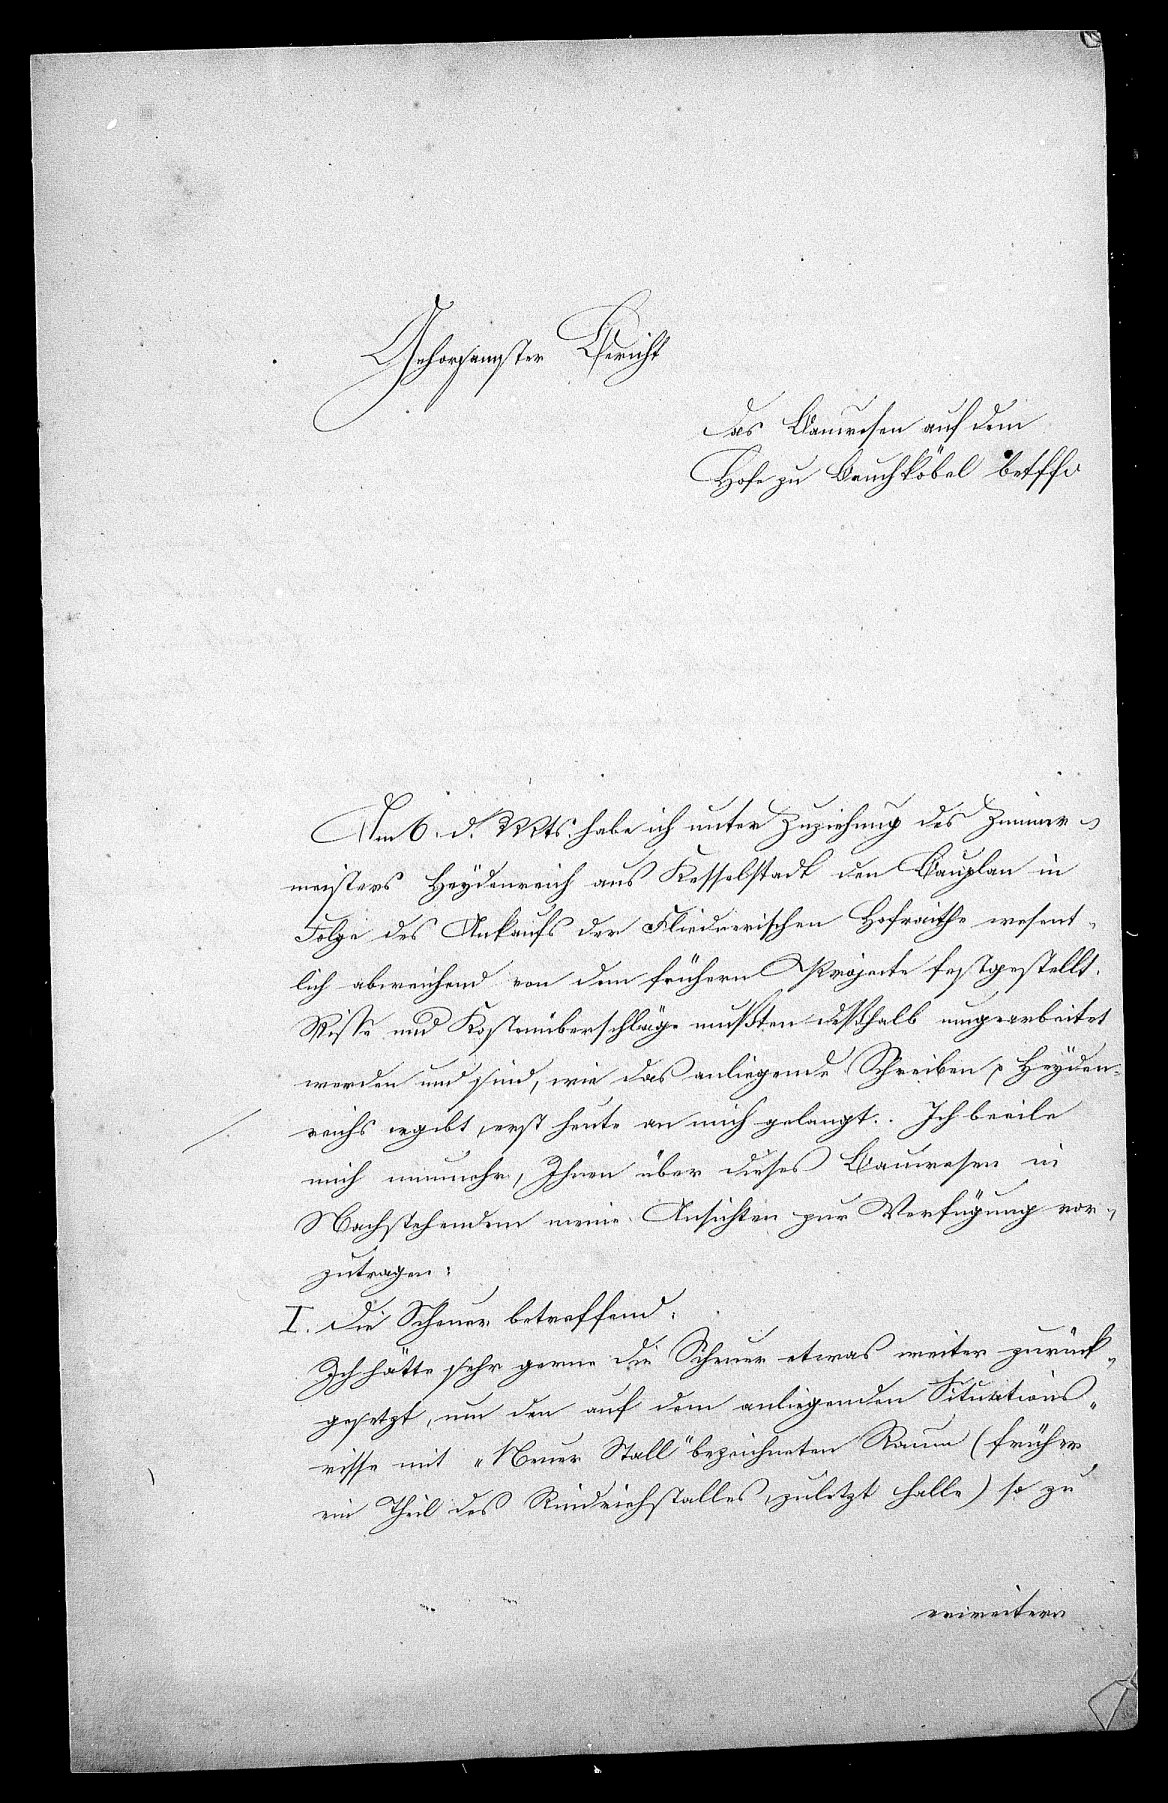 Gehorsamster Bericht
das Bauwesen auf dem
Hofe zu Bruchköbel betffd
Am 6. d. Mts. habe ich unter Zuziehung des Zimmer-
meisters Heydenreich aus Kesselstadt den Bauplan in
Folge des Ankaufs der Fliednerischen Hofraithe wesent-
lich abweichend von dem frühern Projecte festgestellt.
Risse und Kostenüberschläge mußten deßhalb umgearbeitet
werden und sind, wie das anliegende Schreiben Heyden-
reichs ergibt, erst heute an mich gelangt. Ich beeile
mich nunmehr, Ihnen über dieses Bauwesen in
Nachstehendem meine Ansichten zur Verfügung vor-
zutragen:
I. Die Scheuer betreffend.
Ich hätte sehr gerne die Scheuer etwas weiter zurück-
gesetzt, um den auf dem anliegenden Situations-
risse mit „Neuer Stall" bezeichneten Raum (früher
ein Theil des Rindviehstalles, zuletzt Halle) so zu
erweitern